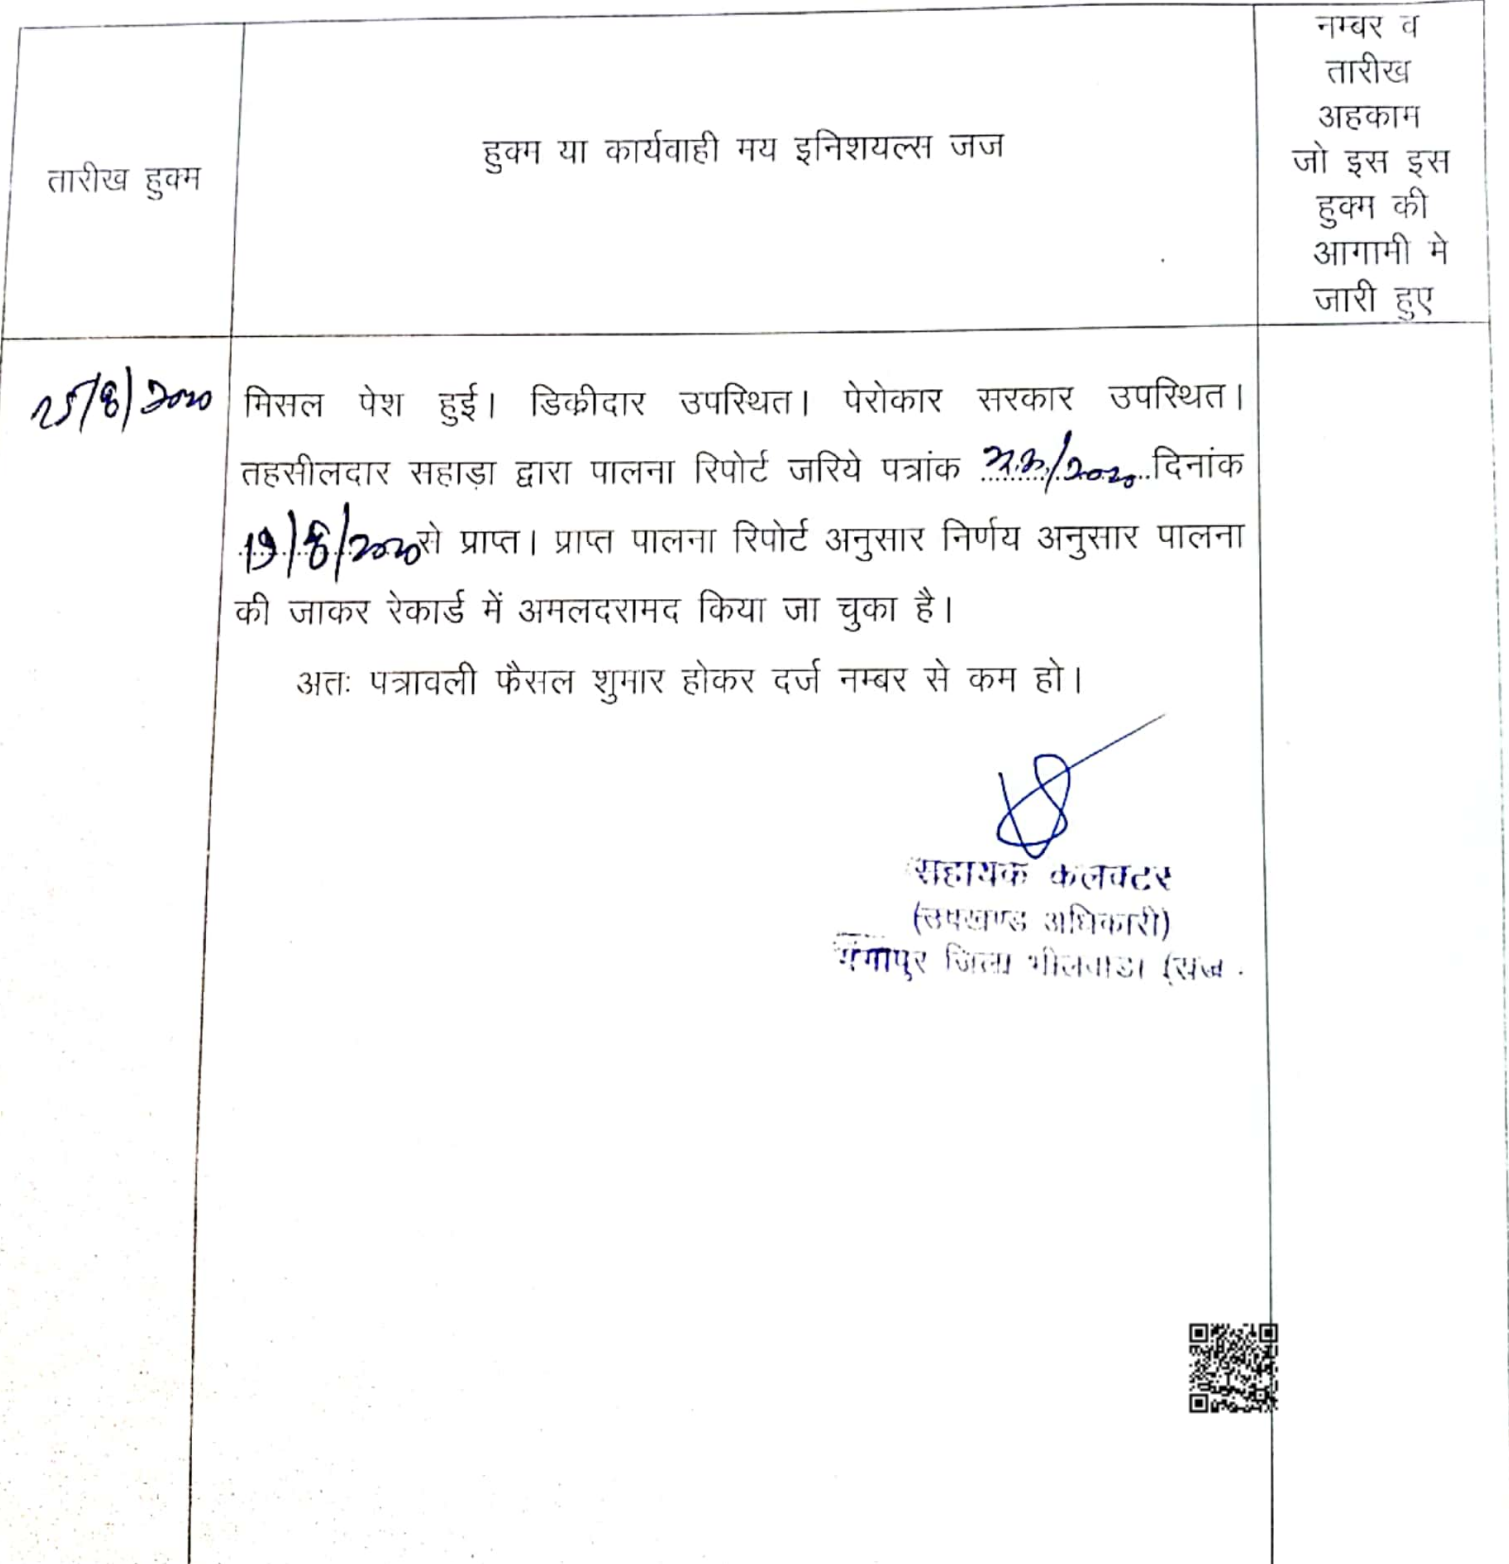 तारीख हुक्म
हुक्म या कार्यवाही मय इनिशयल्स जज
नम्बर व
तारीख
अहकाम
जो इस इस
हुक्म की
आगामी मे
जारी हुए
25/8/2020
मिसल पेश हुई। डिक्रीदार उपस्थित। पेरोकार सरकार उपस्थित।
तहसीलदार सहाड़ा द्वारा पालना रिपोर्ट जरिये पत्रांक /2020 दिनांक
19/8/2020 से प्राप्त। प्राप्त पालना रिपोर्ट अनुसार निर्णय अनुसार पालना
की जाकर रेकार्ड में अमलदरामद किया जा चुका है।
अतः पत्रावली फैसल शुमार होकर दर्ज नम्बर से कम हो।
सहायक कलक्टर
(उपखण्ड अधिकारी)
गंगापुर जिला भीलवाडा